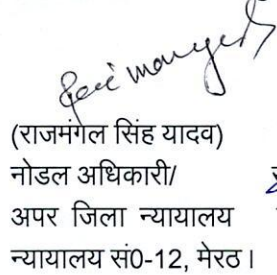 (राजमंगल सिंह यादव)
नोडल अधिकारी/
अपर जिला न्यायालय
न्यायालय सं0-12, मेरठ।